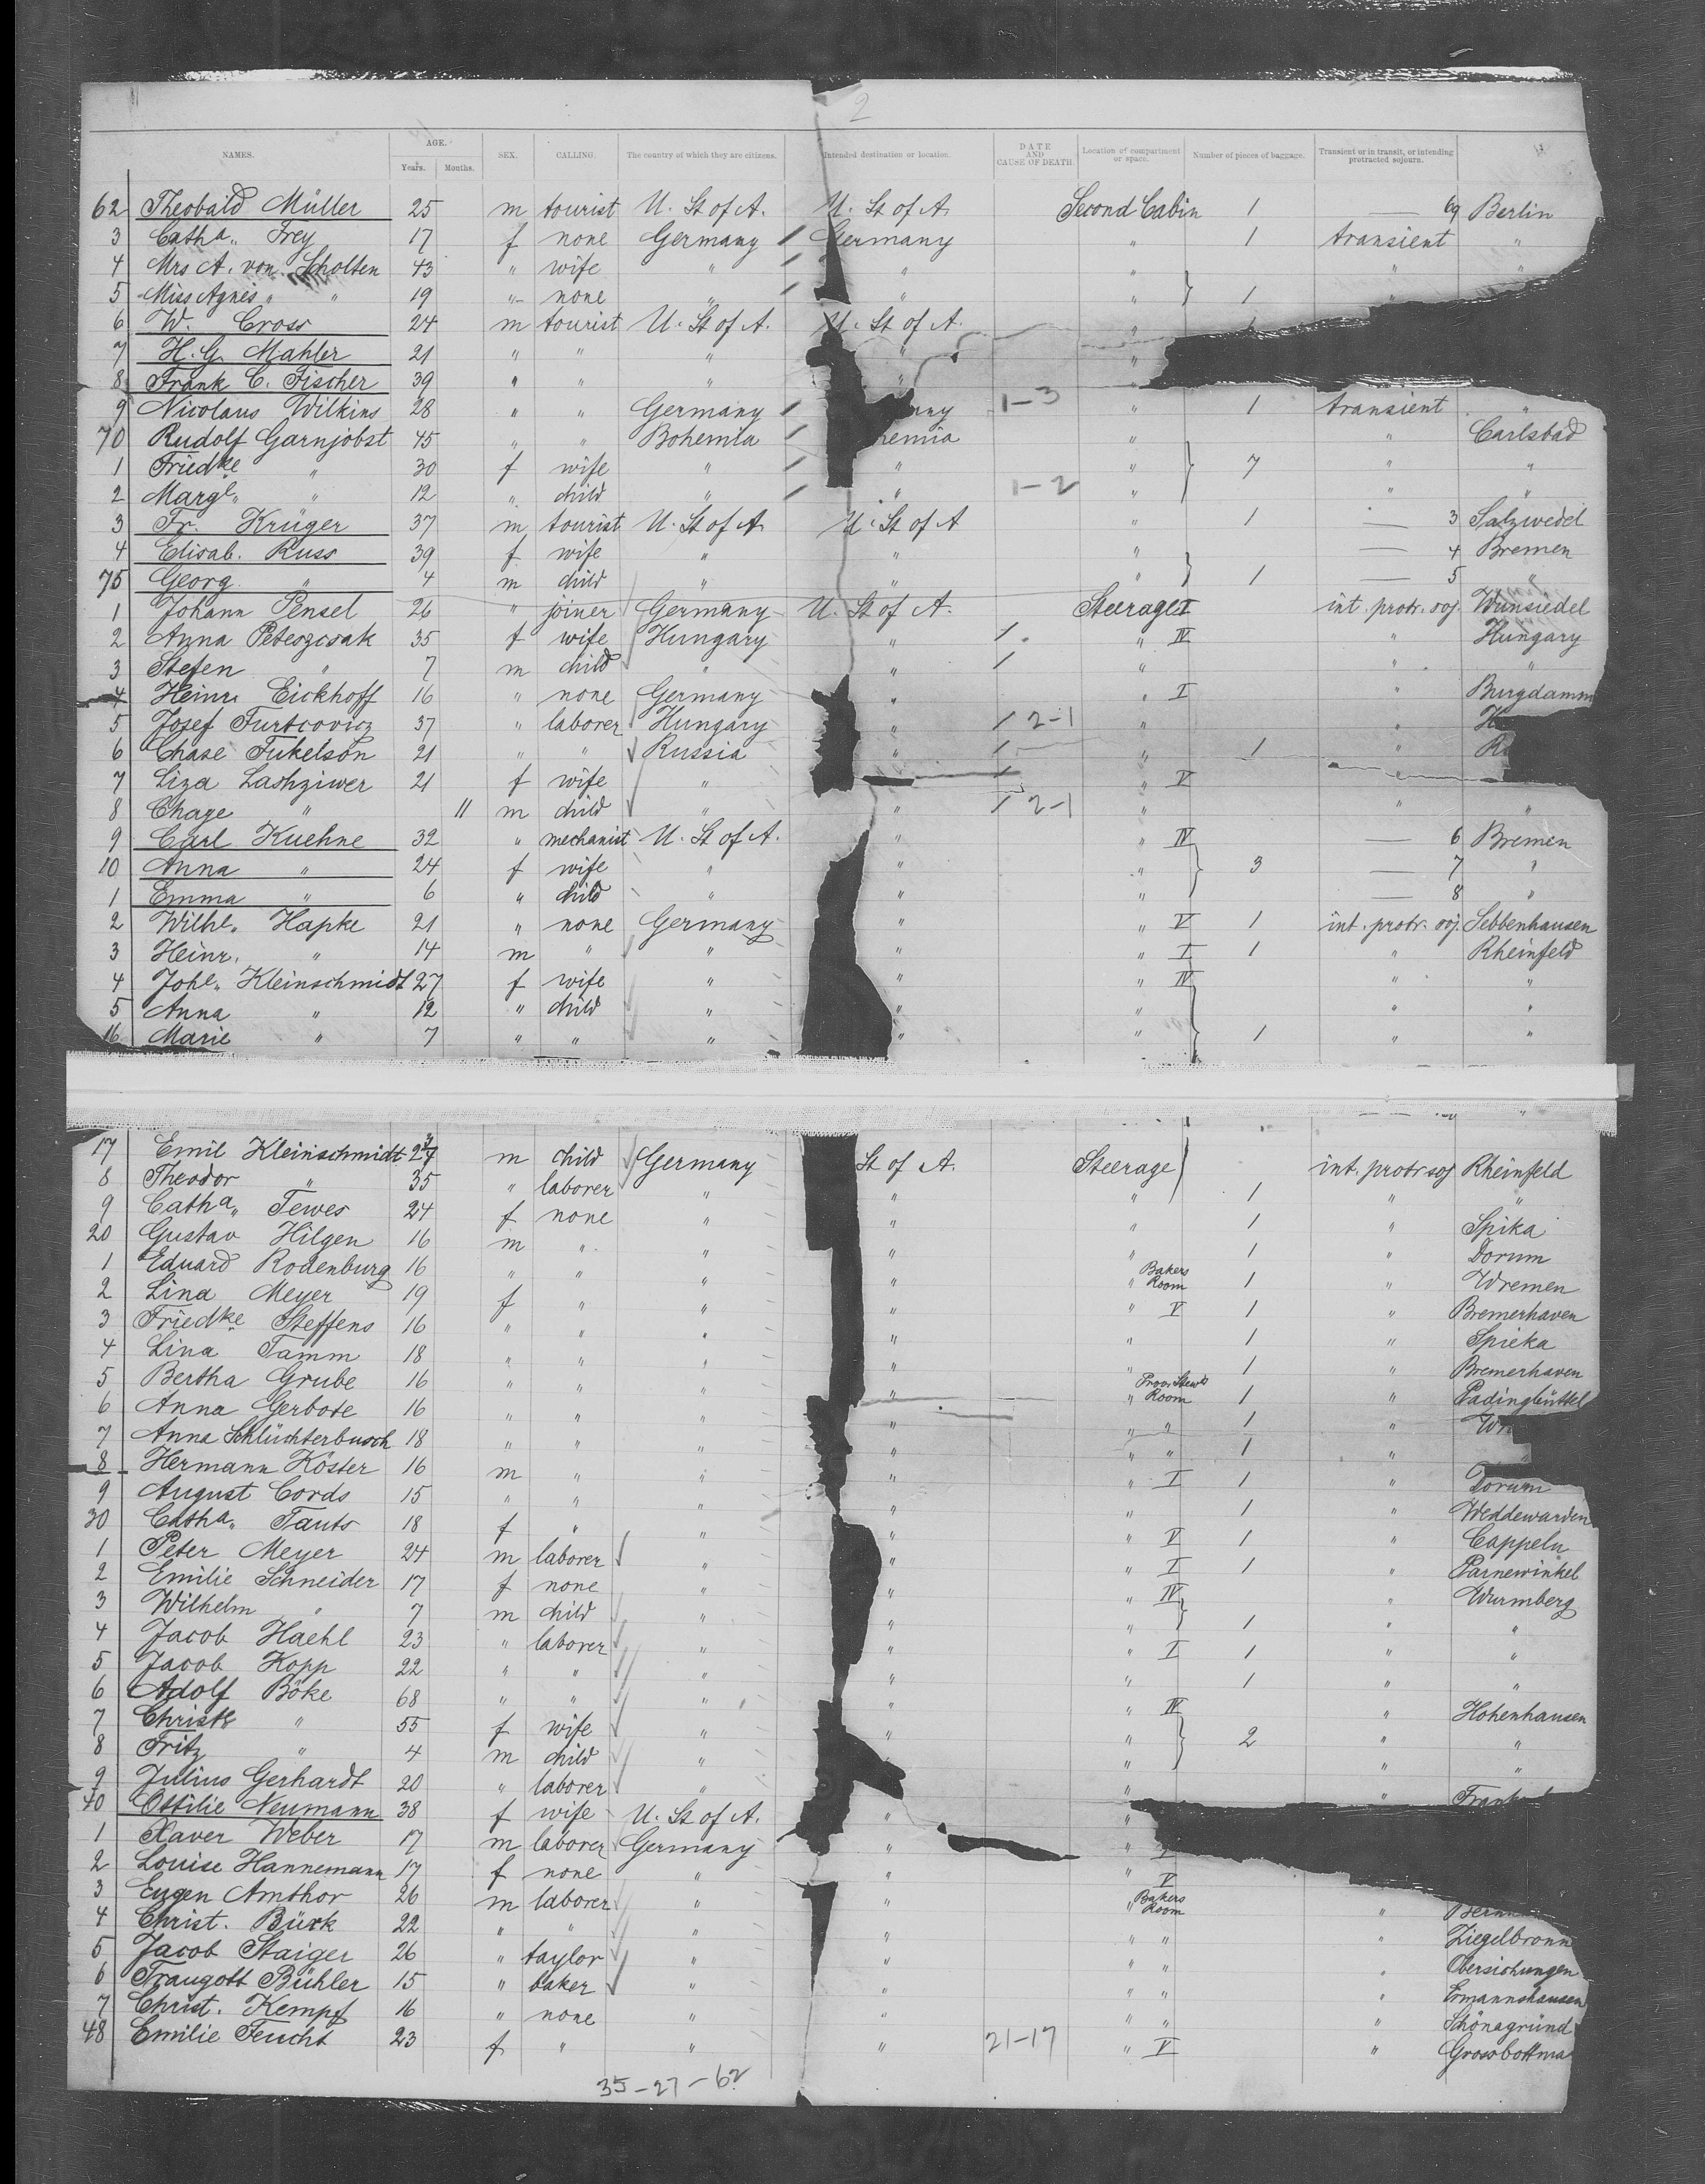 2
NAMES. AGE. SEX. CALLING. The country of which they are citizens. Intended destination or location. DATE AND CAUSE OF DEATH. Location of compartment or space. Number of pieces of baggage. Transient or in transit, or intending protracted sojourn.
Years. Months.
62 Theobald Müller 25 m tourist U. St of A. U. St of A. Second Cabin 1 — 69 Berlin
3 Catha. Frey 17 f none Germany Germany " 1 transient "
4 Mrs A. von Scholten 43 " wife " " " " "
5 Miss Agnes " " 19 " none " " " 1 "
6 W. Cross 24 m tourist U. St of A. U. St of A. "
7 H. G. Mahler 21 " " " " "
8 Frank C. Fischer 39 " " " " "
9 Nicolaus Wilkins 28 " " Germany any 1-3 " 1 transient "
70 Rudolf Garnjobst 45 " " Bohemia hemia " " Carlsbad
1 Friedke " 30 f wife " " " 7 " "
2 Margt. " 12 " child " " 1-2 " " "
3 Fr. Krüger 37 m tourist U. St of A. U. St of A " 1 — 3 Salzwedel
4 Elisab. Russ 39 f wife " " " — 4 Bremen
75 Georg " 4 m child " " " 1 — 5 "
1 Johann Pensel 26 " joiner Germany U. St of A. Steerage I int. protr. soj. Wunsiedel
2 Anna Peteszcsak 35 f wife Hungary " 1 " IV " Hungary
3 Stefen " 7 m child " " 1 " " "
4 Heinr. Eickhoff 16 " none Germany " " I " Burgdamm
5 Josef Furtcovicz 37 " laborer Hungary " 1 2-1 " " H
6 Chase Fukelson 21 " " Russia " 1 " 1 " R
7 Liza Lashziwer 21 f wife " " 1 " V
8 Chage " 11 m child " " 1 2-1 " " "
9 Carl Kuehne 32 " mechanist U. St of A. " " IV — 6 Bremen
10 Anna " 24 f wife " " " 3 — 7 "
1 Emma " 6 " child " " " — 8 "
2 Wilhe. Hapke 21 " none Germany " " V 1 int. protr. soj. Sebbenhausen
3 Heinr. " 14 m " " " " I 1 " Rheinfeld
4 Johe. Kleinschmidt 27 f wife " " " IV " "
5 Anna " 12 " child " " " " "
16 Marie " 7 " " " " " 1 " "
17 Emil Kleinschmidt m child Germany St of A. Steerage int. protr soj Rheinfeld
8 Theodor " 35 " laborer " " " 1 " "
9 Catha. Tewes 24 f none " " " 1 " Spika
20 Gustav Hilgen 16 m " " " " 1 " Dorum
1 Eduard Rodenburg 16 " " " " " Bakers Room 1 " Wremen
2 Lina Meyer 19 f " " " " V 1 " Bremerhaven
3 Friedke Steffens 16 " " " " " 1 " Spieka
4 Lina Tamm 18 " " " " " 1 " Bremerhaven
5 Bertha Grube 16 " " " " " Prov. Stewds Room 1 " Padingbüttel
6 Anna Gerbote 16 " " " " " " 1 " Wr
7 Anna Schlüchterbusch 18 " " " " " " 1 " "
8 Hermann Köster 16 m " " " " I 1 " Dorum
9 August Cords 15 " " " " " 1 " Weddewarden
30 Catha. Tants 18 f " " " " V 1 " Cappeln
1 Peter Meyer 24 m laborer " " " I 1 " Parnewinkel
2 Emilie Schneider 17 f none " " " IV " Wurmberg
3 Wilhelm " 7 m child " " " 1 " "
4 Jacob Haehl 23 " laborer " " " I 1 " "
5 Jacob Kopp 22 " " " " " 1 " "
6 Adolf Böke 68 " " " " " IV " Hohenhausen
7 Christe " 55 f wife " " " 2 " "
8 Fritz " 4 m child " " " " "
9 Julius Gerhardt 20 " laborer " " " " Frank
40 Ottilie Neumann 38 f wife U. St of A. " "
1 Xaver Weber 17 m laborer Germany " " I
2 Louise Hannemann 17 f none " " " V
3 Eugen Amthor 26 m laborer " " " Bakers Room "
4 Christ. Bürk 22 " " " " " " " Ziegelbronn
5 Jacob Staiger 26 " taylor " " " " " Obersichungen
6 Traugott Bühler 15 " baker " " " " " Ermannshausen
7 Christ. Kempf 16 " none " " " " " Schönagründ
48 Emilie Feucht 23 f " " " 21-17 " V " Grossbottma
35-27-62